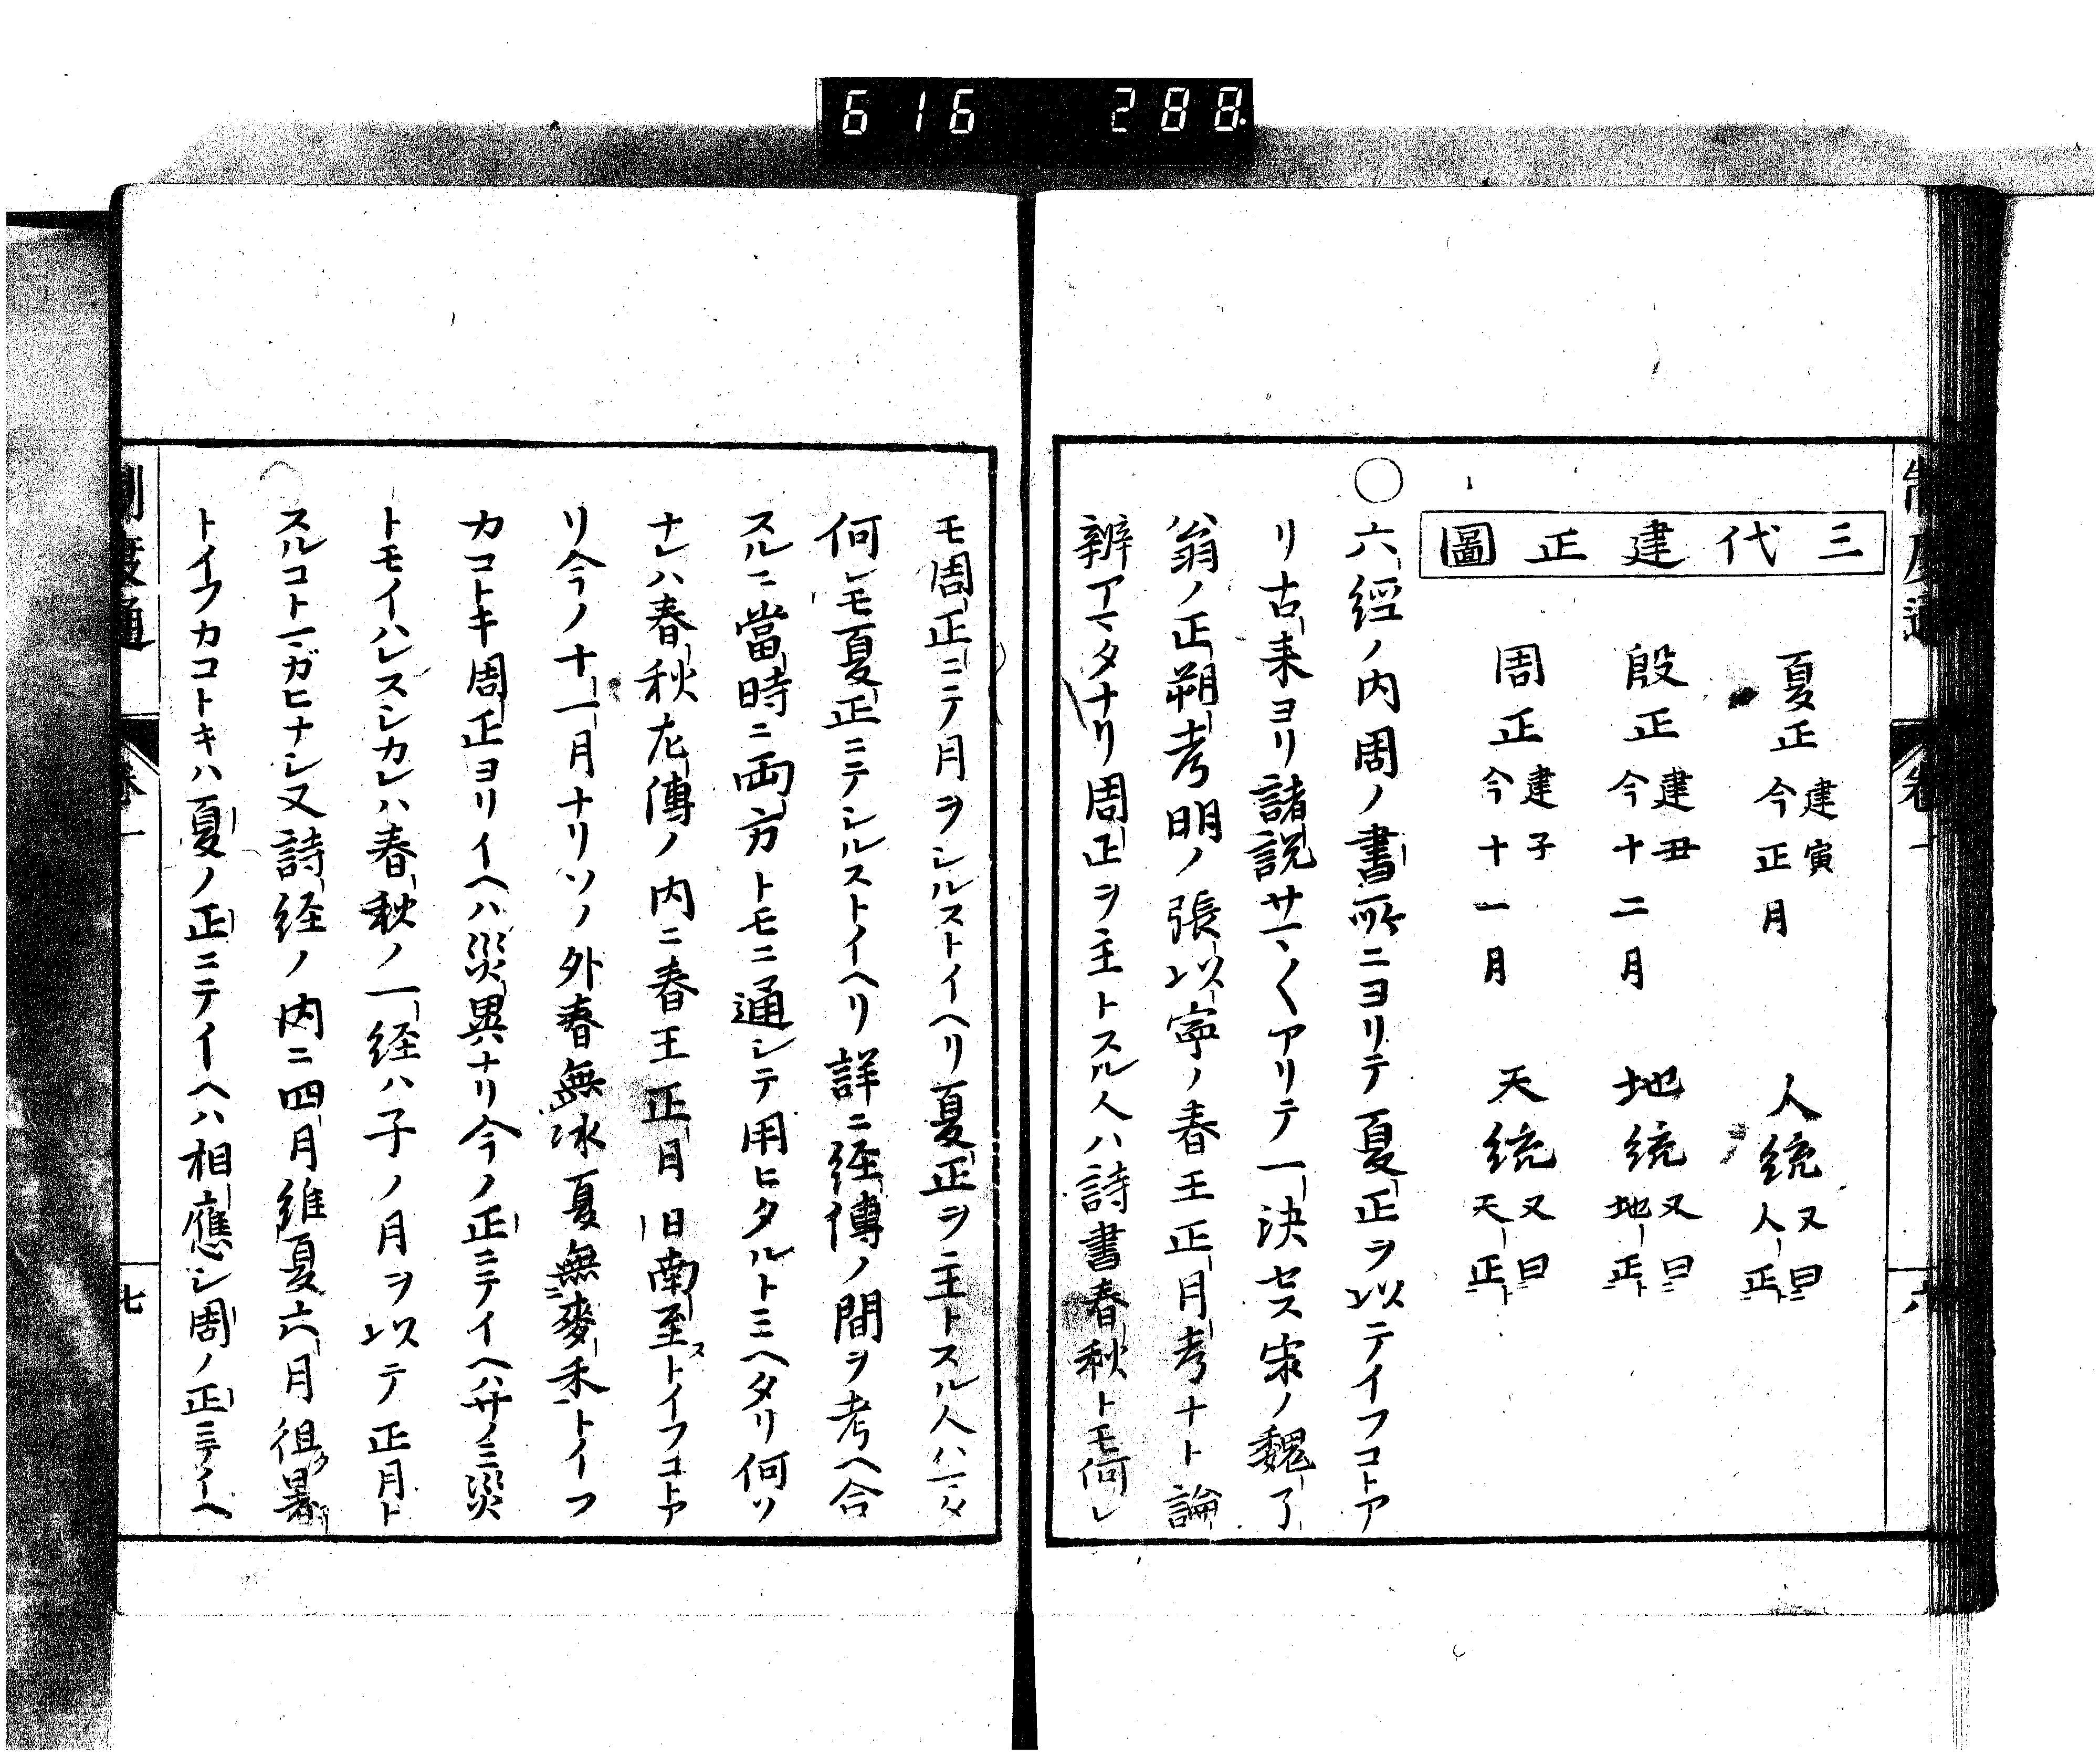 616 288
制度通 卷一 六
三代建正圖
夏正 建寅 今正月 人統 又曰人正
殷正 建丑 今十二月 地統 又曰地正
周正 建子 今十一月 天統 又曰天正
○六經ノ内周ノ書所ニヨリテ夏正ヲ以テイフコトア
リ古来ヨリ諸説サマ〱アリテ一決セス宋ノ魏了
翁ノ正朔考明ノ張以寧ノ春王正月考ナト論
辨アマタナリ周正ヲ主トスル人ハ詩書春秋トモ何レ
モ周正ニテ月ヲシルストイヘリ夏正ヲ主トスル人ハ又
何レモ夏正ニテシルストイヘリ詳ニ経傳ノ間ヲ考ヘ合
スルニ當時ニ両方トモニ通シテ用ヒタルトミヘタリ何ソ
ナレハ春秋左傳ノ内ニ春王正月日南至ストイフコトア
リ今ノ十一月ナリソノ外春無冰夏無麥禾トイフ
カコトキ周正ヨリイヘハ災異ナリ今ノ正ニテイヘハサノミ災
トモイハレスシカレハ春秋ノ一経ハ子ノ月ヲ以テ正月ト
スルコトマガヒナシ又詩経ノ内ニ四月維夏六月徂暑
トイフカコトキハ夏ノ正ニテイヘハ相應シ周ノ正ニテイヘ
制度通 卷一 七